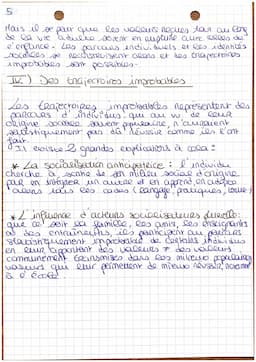 5
Mais il se peut que les valeurs reçues tout au long
de la vie d'adulte soient en rupture avec celles de
l'enfance. Les parcours individuels et les identités
sociales se reconstruisent alors et les trajectoires
improbables sont possibles.
IV) Des trajectoires improbables
Les trajectoires improbables représentent des
parcours d'individus qui au vu de leur
origine sociale souvent n'auraient
statistiquement pas dû réussir comme ils l'ont
fait.
Il existe 2 grandes explications à cela :
* La socialisation anticipatrice : l'individu
cherche à sortir de son milieu social d'origine
pour en intégrer un autre et en apprend, en adopte
alors tous les codes (langage, pratiques,
* L'influence d'acteurs socialisateurs
que ce soit la famille, les amis, les enseignants
ou des entraîneurs, ils participent au parcours
statistiquement improbable de certains individus
en leur apportant des valeurs ≠ des valeurs
communément transmises dans les milieux populaires
valeurs qui leur permettent de mieux réussir,
à l'école.